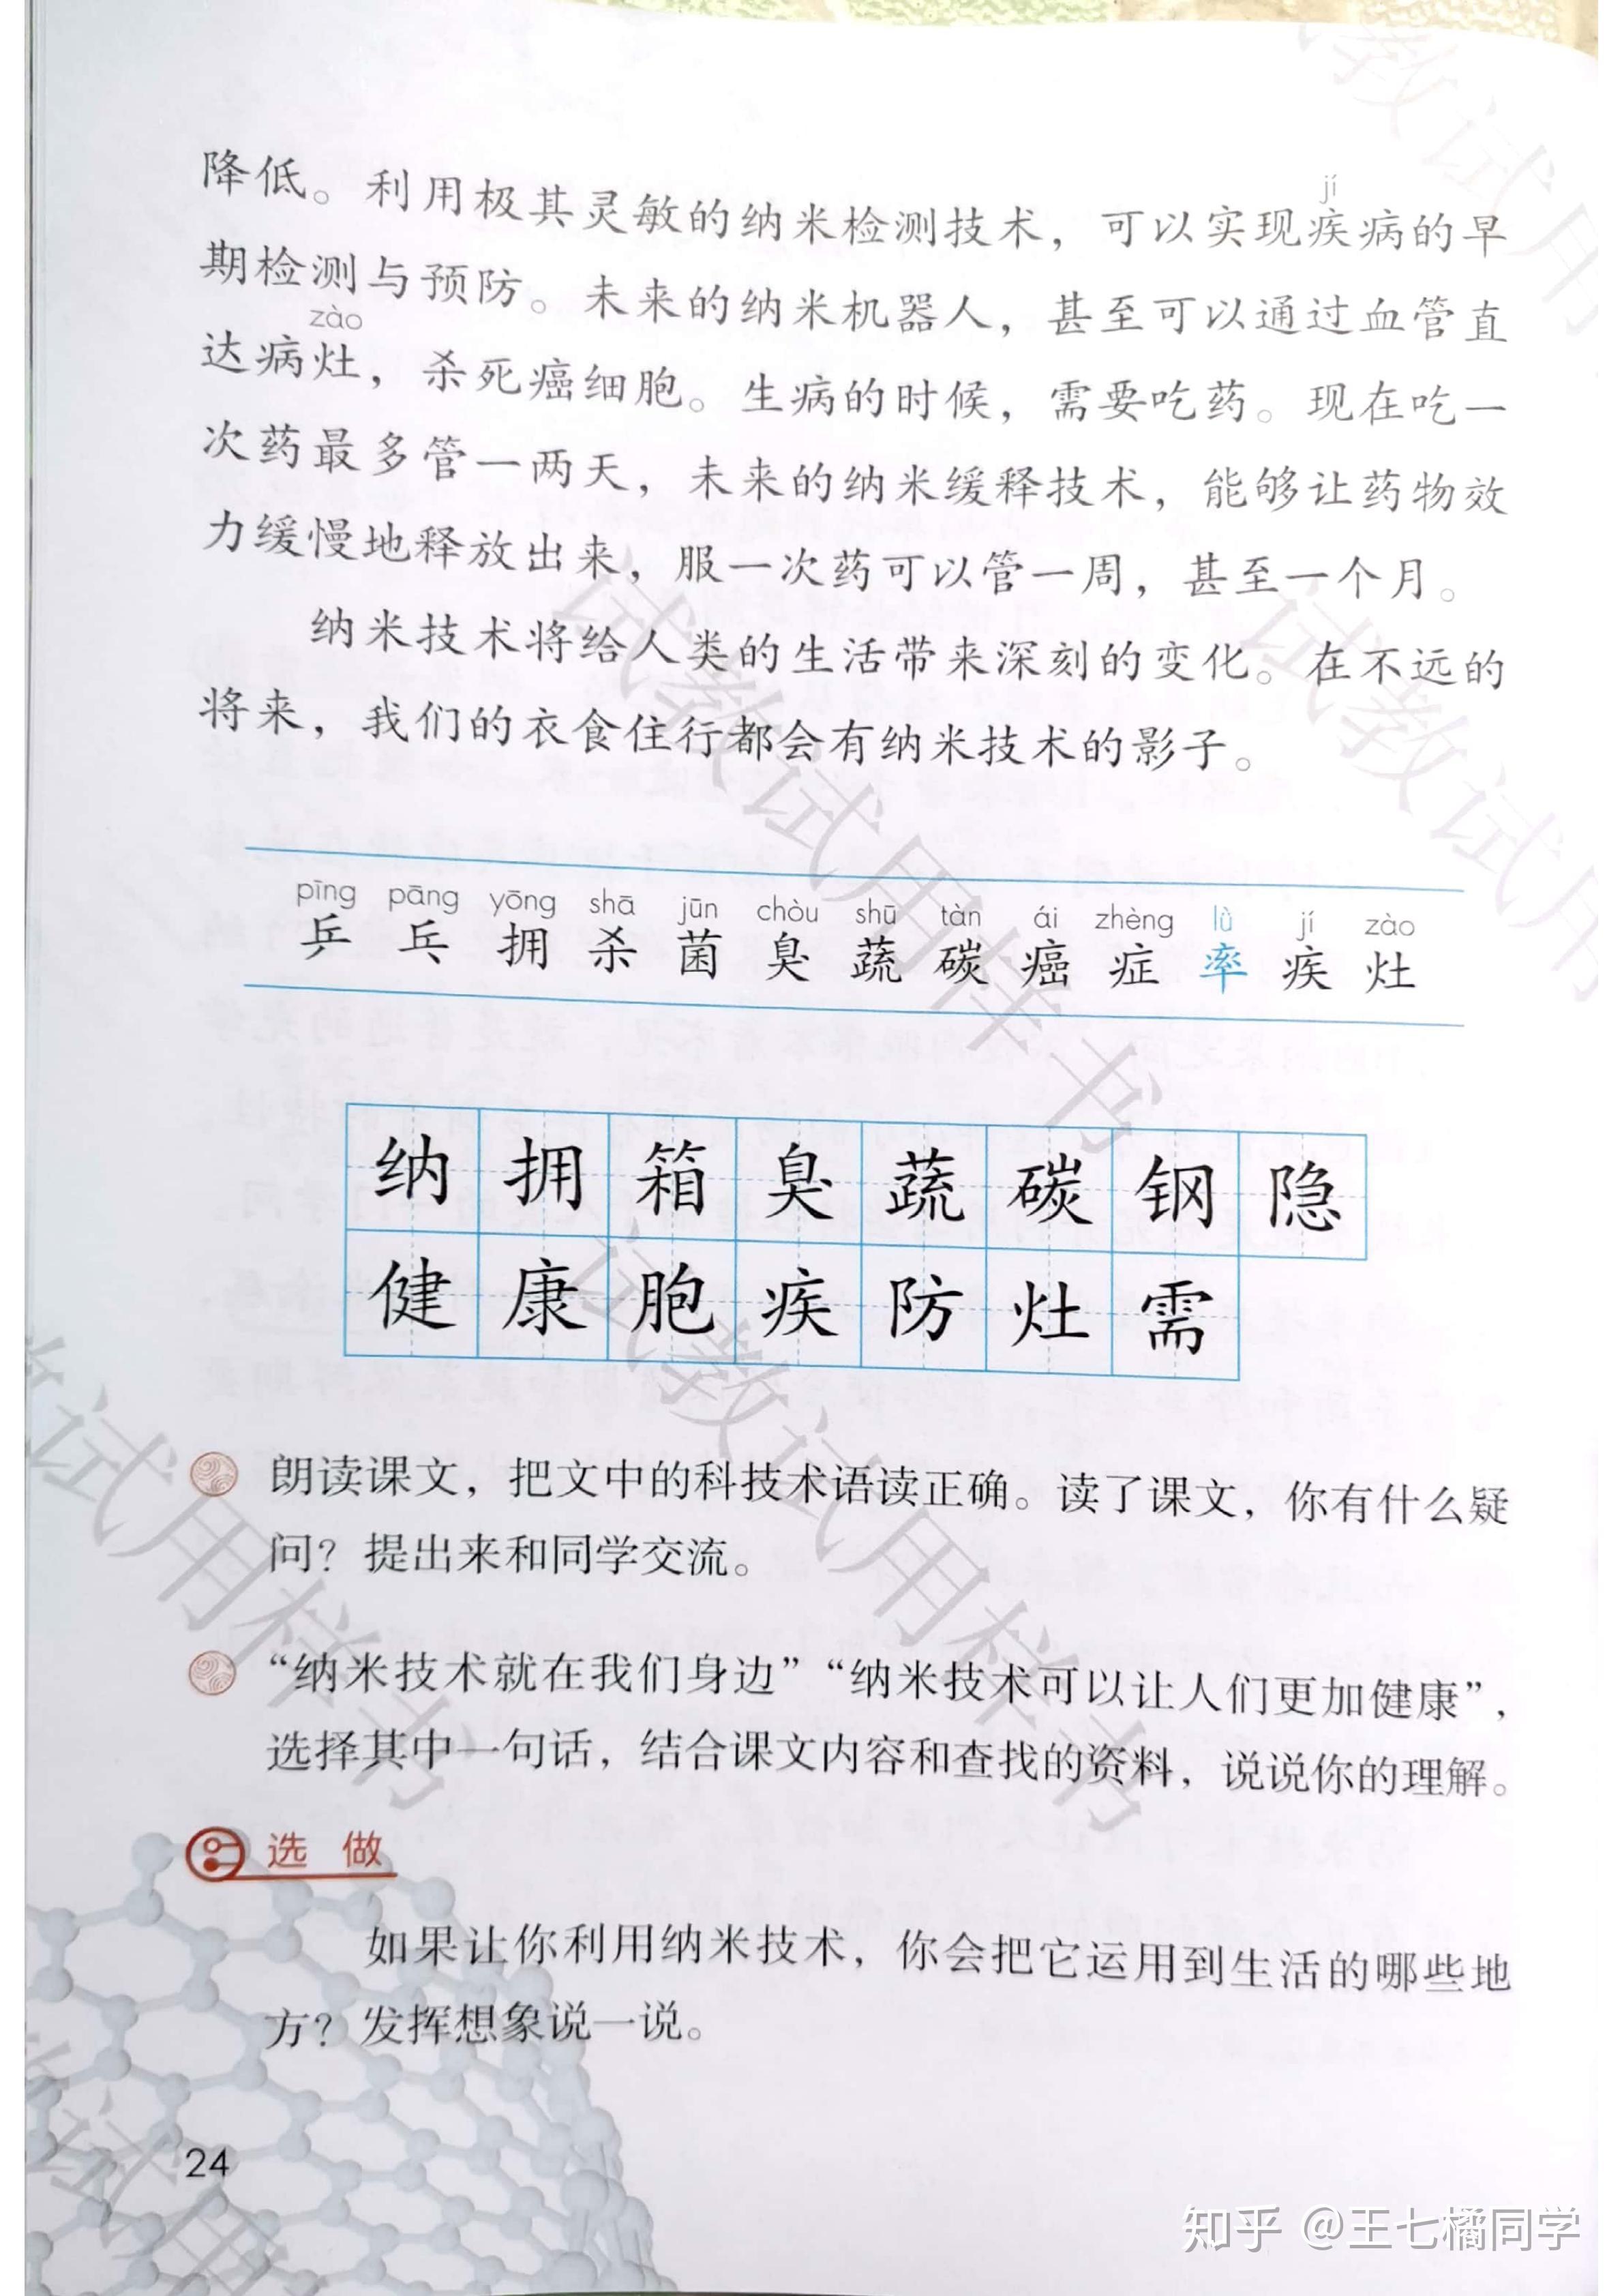 降低。利用极其灵敏的纳米检测技术，可以实现疾病的早
jí
期检测与预防。未来的纳米机器人，甚至可以通过血管直
zào
达病灶，杀死癌细胞。生病的时候，需要吃药。现在吃一
次药最多管一两天，未来的纳米缓释技术，能够让药物效
力缓慢地释放出来，服一次药可以管一周，甚至一个月。
纳米技术将给人类的生活带来深刻的变化。在不远的
将来，我们的衣食住行都会有纳米技术的影子。
pīng pāng yōng shā jūn chòu shū tàn ái zhèng lǜ jí zào
乒 乓 拥 杀 菌 臭 蔬 碳 癌 症 率 疾 灶
纳 拥 箱 臭 蔬 碳 钢 隐
健 康 胞 疾 防 灶 需
朗读课文，把文中的科技术语读正确。读了课文，你有什么疑
问？提出来和同学交流。
“纳米技术就在我们身边”“纳米技术可以让人们更加健康”，
选择其中一句话，结合课文内容和查找的资料，说说你的理解。
选 做
如果让你利用纳米技术，你会把它运用到生活的哪些地
方？发挥想象说一说。
24
试教试用样书
试教试用样书
试教试用样书
知乎 @王七橘同学